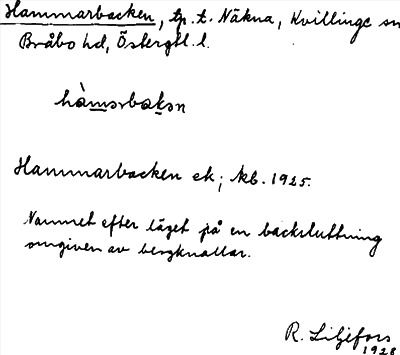 Hammarbacken, tp. t. Näkna, Kvillinge sn
Bråbo hd, Östergtl. l.
hàmarbakən
Hammarbacken ek; kb. 1925.
Namnet efter läget på en backsluttning
omgiven av bergknallar.
R. Liljefors
1928